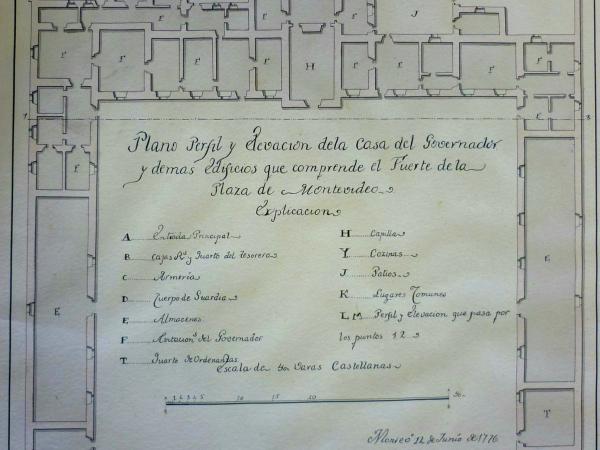 Plano Perfil y Elevacion dela Casa del Governador
y demas edificios que comprende el Fuerte dela
Plaza de Montevideo.
Explicacion
A Entrada Principal
B Cajas Rs. y Quarto del Tesorero
C Armeria
D Cuerpo de Guardia
E Almacenes
F Avitacion del Governador
T Quarto de Ordenanzas
H Capilla
Y Cozinas
J Patios
K Lugares Comunes
L M Perfil y Elevacion que pasa por
los puntos 1 2
Escala de Varas Castellanas
Montevo. 12 de Junio de 1776